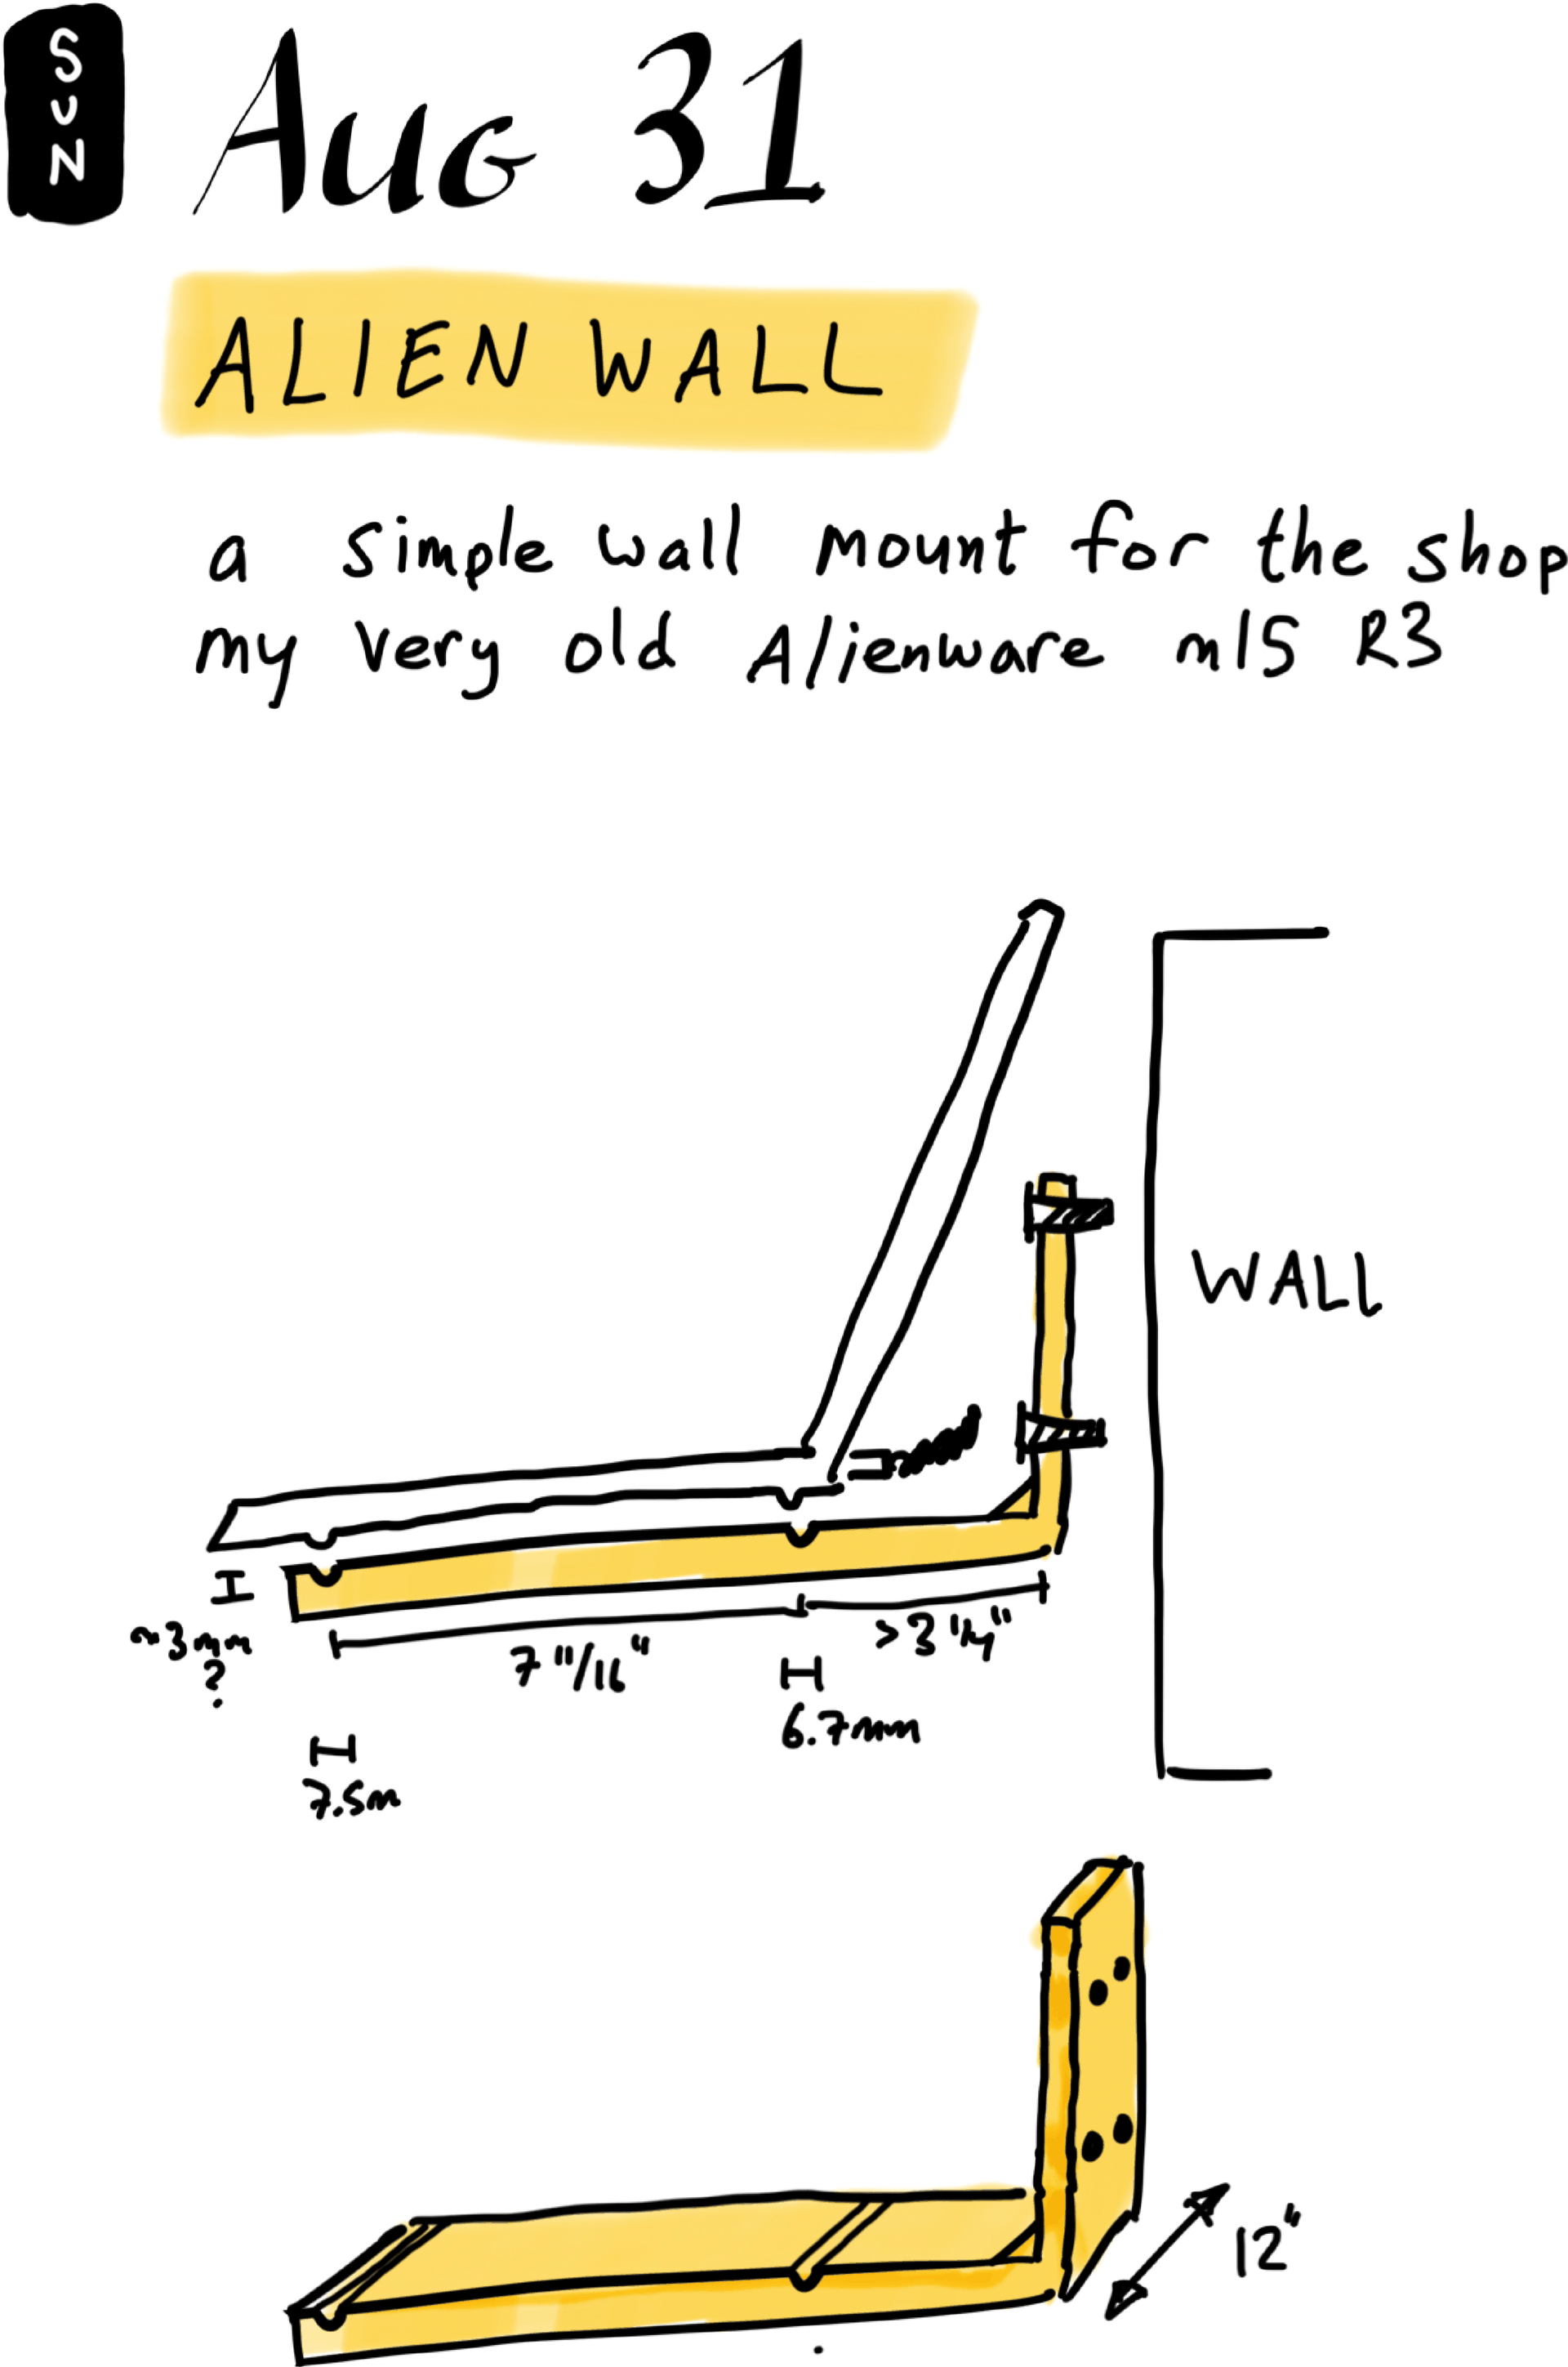 SUN
Aug 31
ALIEN WALL
a simple wall mount for the shop
my very old Alienware m15 R3
WALL
~3mm
?
7 11/16"
>3 1/4"
6.7mm
7.5m
12"